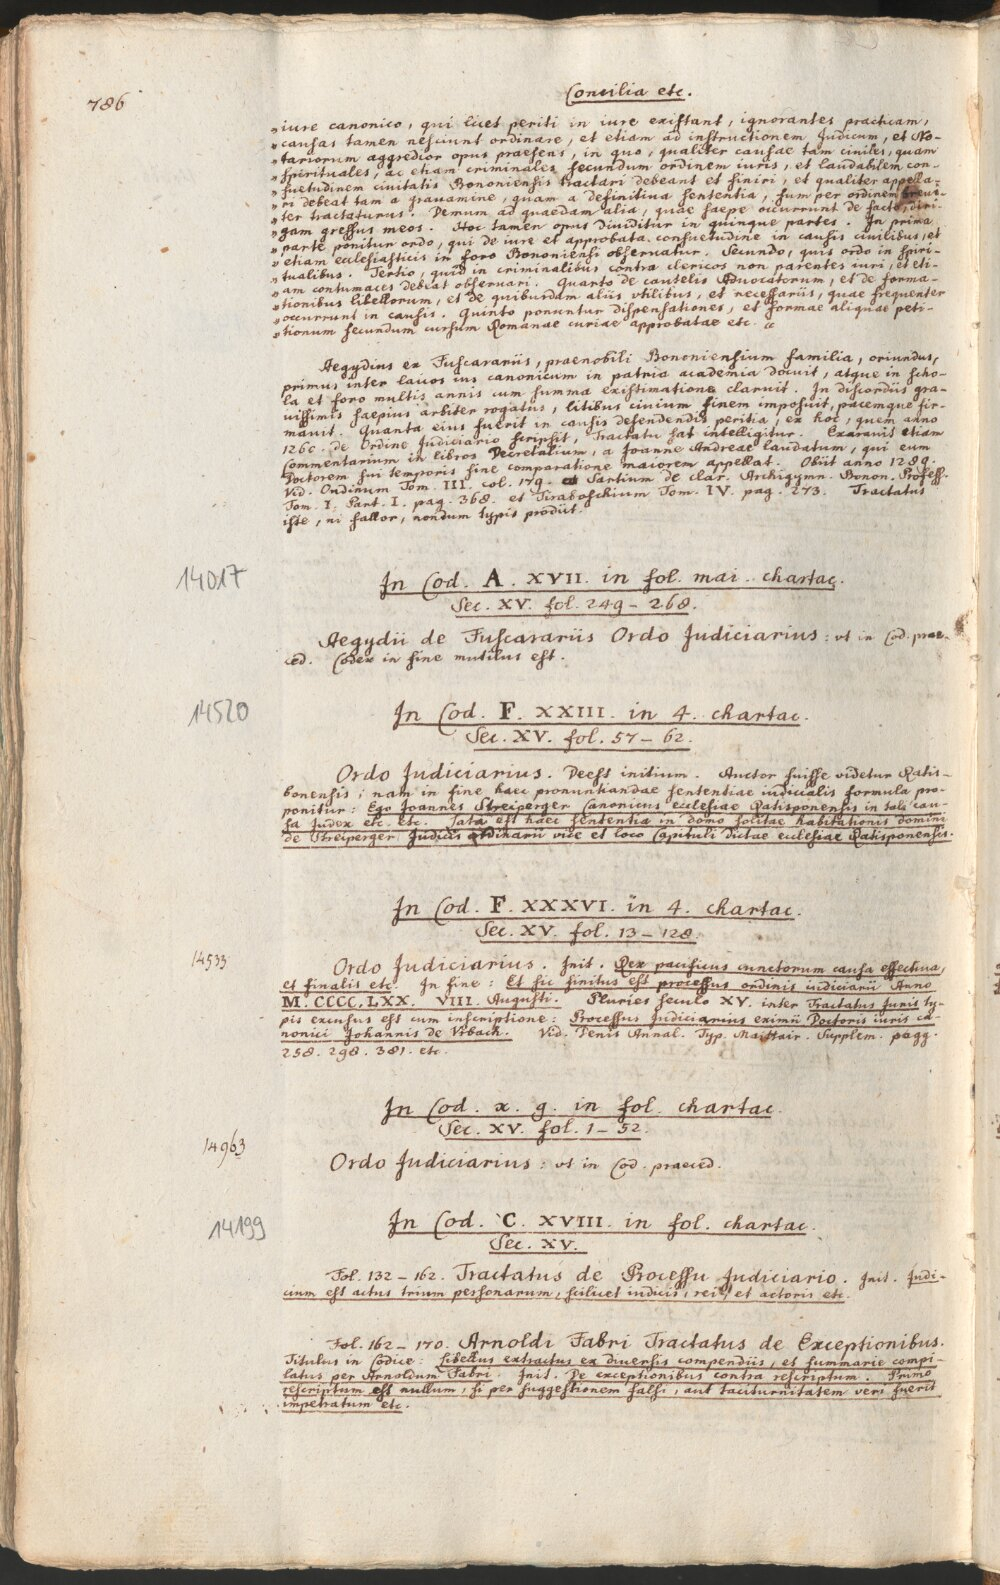 786
Concilia etc.
„iure canonico, qui licet periti in iure existant, ignorantes practicam,
„causas tamen nesciunt ordinare, et etiam ad instructionem Judicum, et No-
„tariorum aggredior opus praesens, in quo, qualiter causae tam civiles, quam
„spirituales, ac etiam criminales secundum ordinem iuris, et laudabilem con-
„suetudinem civitatis Bononiensis tractari debeant et finiri, et qualiter appella-
„ri debeat tam a gravamine, quam a definitiva sententia, sum per ordinem brevi-
„ter tractaturus. Demum ad quaedam alia, quae saepe occurrunt de facto, diri-
„gam gressus meos. Hoc tamen opus dividitur in quinque partes. In prima
„parte ponitur ordo, qui de iure et approbata consuetudine in causis civilibus, et
„etiam ecclesiasticis in foro Bononiensi observatur. Secundo, quis ordo in spiri-
„tualibus. Tertio, quid in criminalibus contra clericos non parentes iuri, et eti-
„am contumaces debeat observari. Quarto de cautelis Advocatorum, et de forma-
„tionibus libellorum, et de quibusdam aliis utilibus, et necessariis, quae frequenter
„occurrunt in causis. Quinto ponuntur dispensationes, et formae aliquae peti-
„tionum secundum cursum Romanae curiae approbatae etc. “
Aegydius ex Fuscarariis, praenobili Bononiensium familia, oriundus,
primus inter laicos ius canonicum in patria academia docuit, atque in scho-
la et foro multis annis cum summa existimatione claruit. In discordiis gra-
vissimis saepius arbiter rogatus, litibus civium finem imposuit, pacemque fir-
mavit. Quanta eius fuerit in causis defendendis peritia, ex hoc, quem anno
1260. de Ordine Judiciario scripsit, Tractatu sat intelligitur. Exaravit etiam
Commentarium in libros Decretalium, a Joanne Andreae laudatum, qui eum
Doctorem sui temporis sine comparatione maiorem appellat. Obiit anno 1289.
Vid. Oudinum Tom. III. col. 179. Sartium de clar. Archigymn. Bonon. Profess.
Tom. I. Part. I. pag. 368. et Tiraboschium Tom. IV. pag. 273. Tractatus
iste, ni fallor, nondum typis prodiit.
14017
In Cod. A. XVII. in fol. mai. chartac.
Sec. XV. fol. 249-268.
Aegydii de Fuscarariis Ordo Judiciarius: ut in Cod. prae-
ced. Codex in fine mutilus est.
14520
In Cod. F. XXIII. in 4. chartac.
Sec. XV. fol. 57-62.
Ordo Judiciarius. Deest initium. Auctor fuisse videtur Ratis-
bonensis; nam in fine haec pronuntiandae sententiae iudicialis formula pro-
ponitur: Ego Joannes Streiperger Canonicus ecclesiae Ratisponensis in tali cau-
sa Judex etc. etc. Lata est haec sententia in domo solitae habitationis domini
de Streiperger Judicis ordinarii vice et loco Capituli dictae ecclesiae Ratisponensis.
In Cod. F. XXXVI. in 4. chartac.
Sec. XV. fol. 13-128.
14533
Ordo Judiciarius. Init. Rex pacificus cunctorum causa effectiva,
et finalis etc. In fine: Et sic finitus est processus ordinis iudiciarii Anno
M. CCCC. LXX. VIII. Augusti. Pluries seculo XV. inter Tractatus Juris ty-
pis excusus est cum inscriptione: Processus Judiciarius eximii Doctoris iuris ca-
nonici Johannis de Vrbach. Vid. Denis Annal. Typ. Maittair. Supplem. pagg.
258. 298. 381. etc.
In Cod. x. g. in fol. chartac.
Sec. XV. fol. 1-52.
14963
Ordo Judiciarius: ut in Cod. praeced.
14199
In Cod. C. XVIII. in fol. chartac.
Sec. XV.
Fol. 132-162. Tractatus de Processu Judiciario. Init. Judi-
cium est actus trium personarum, scilicet iudicis, rei, et actoris etc.
Fol. 162-170. Arnoldi Fabri Tractatus de Exceptionibus.
Titulus in Codice: Libellus extractus ex diversis compendiis, et summarie compi-
latus per Arnoldum Fabri. Init. De exceptionibus contra rescriptum. Primo
rescriptum est nullum, si per suggestionem falsi, aut taciturnitatem veri fuerit
impetratum etc.